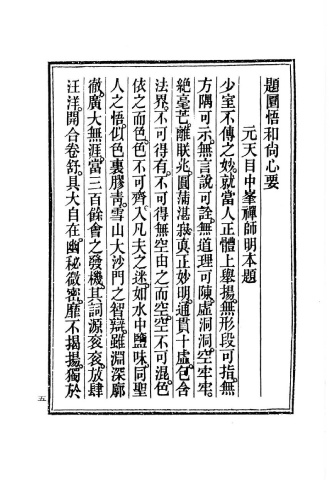 題圜悟和尚心要
元天目中峯禪師明本題
少室不傳之妙。就當人正體上舉揚。無形段可指。無
方隅可示。無言說可詮。無道理可陳。虛洞洞。空牢牢。
絕毫芒。離朕兆。圓蒲湛寂。真正妙明。通貫十虛。包含
法界。不可得有。不可得無。空由之而空。空不可混。色
依之而色。色不可齊。入凡夫之迷。如水中鹽味。同聖
人之悟。似色裏膠青。雪山大沙門之智辯。雖淵深廓
徹。廣大無涯。當三百餘會之發機。其詞源袞袞。放肆
汪洋。開合卷舒。具大自在。幽秘微密。靡不揭揚。獨於
五